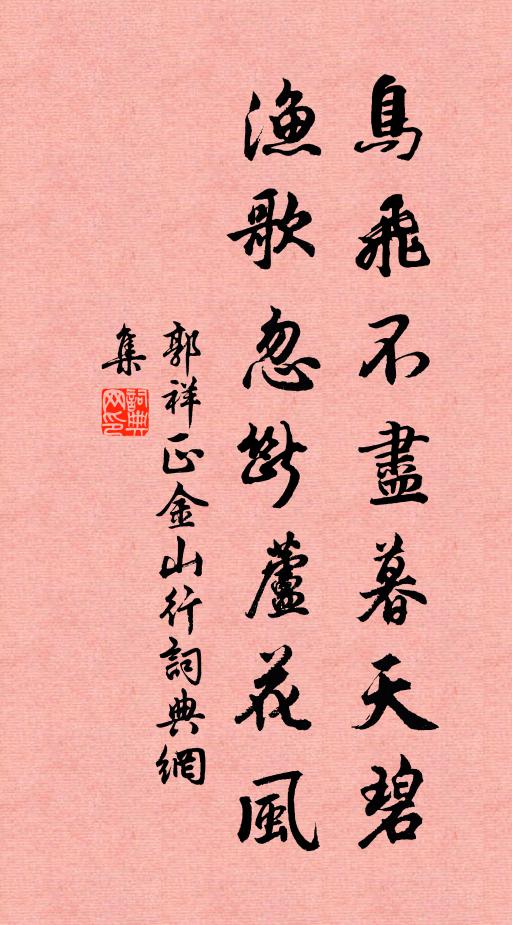 鳥飛不盡暮天碧
漁歌忽斷蘆花風
郭祥正金山行詞典網
集
詞典
网印